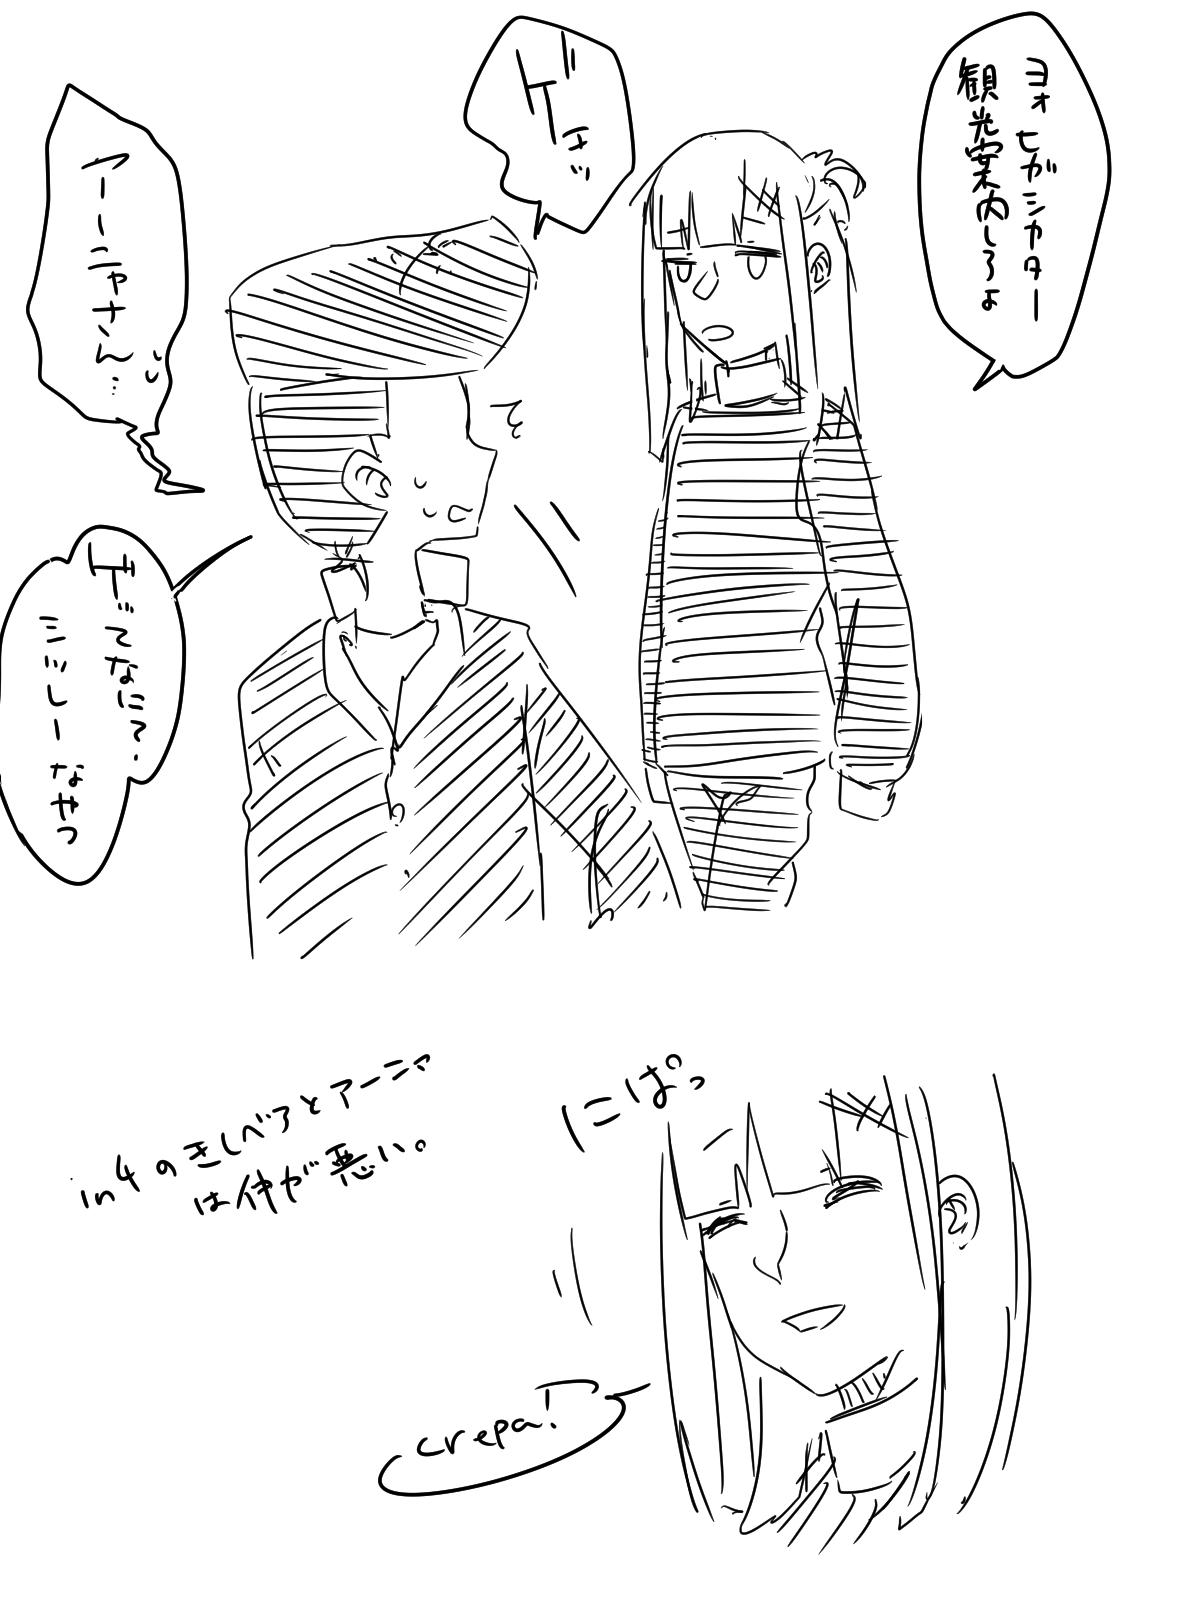 ヨォ ヒガシカター
観光案内しろよ
ゲェッ
アーニャさん…
ゲってなに?
シツレーなやつ
in4のきしべアとアーニャ
は仲が悪い。
にぱっ
crepa!